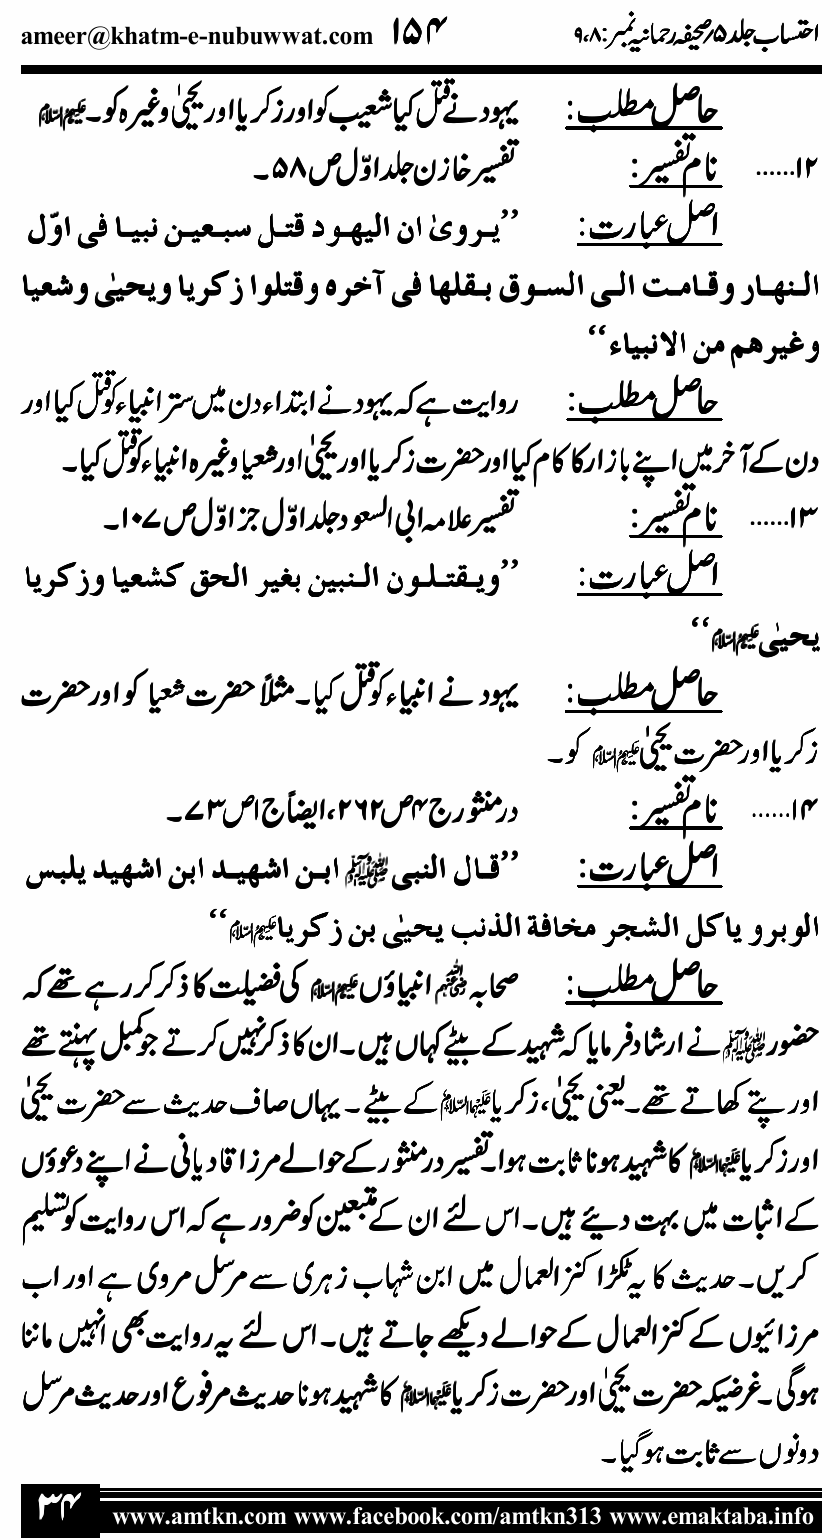 احتساب جلد۵؍صحیفہ رحمانیہ نمبر:۹،۸ ۱۵۴ ameer@khatm-e-nubuwwat.com
حاصل مطلب: یہود نے قتل کیا شعیب کو اور زکریا اور یحییٰ وغیرہ کو۔ علیہم السلام
۱۲...... نام تفسیر: تفسیر خازن جلد اوّل ص۵۸۔
اصل عبارت: ’’یروی ان الیہود قتل سبعین نبیا فی اوّل
النہار وقامت الی السوق بقلھا فی آخرہ وقتلوا زکریا ویحییٰ وشعیا
وغیرھم من الانبیاء‘‘
حاصل مطلب: روایت ہے کہ یہود نے ابتداء دن میں ستر انبیاء کو قتل کیا اور
دن کے آخر میں اپنے بازار کا کام کیا اور حضرت زکریا اور یحییٰ اور شعیا وغیرہ انبیاء کو قتل کیا۔
۱۳...... نام تفسیر: تفسیر علامہ ابی السعود جلد اوّل جز اوّل ص۱۰۷۔
اصل عبارت: ’’ویقتلون النبین بغیر الحق کشعیا وزکریا
یحییٰ علیہم السلام‘‘
حاصل مطلب: یہود نے انبیاء کو قتل کیا۔ مثلاً حضرت شعیا کو اور حضرت
زکریا اور حضرت یحییٰ علیہم السلام کو۔
۱۴...... نام تفسیر: درمنثور ج۴ ص۲۶۲، ایضاً ج۱ ص۷۳۔
اصل عبارت: ’’قال النبی ﷺ ابن اشھید ابن اشھید یلبس
الوبر و یاکل الشجر مخافۃ الذنب یحییٰ بن زکریا علیہم السلام‘‘
حاصل مطلب: صحابہ رضی اللہ عنہم انبیاؤں علیہم السلام کی فضیلت کا ذکر کر رہے تھے کہ
حضور ﷺ نے ارشاد فرمایا کہ شہید کے بیٹے کہاں ہیں۔ ان کا ذکر نہیں کرتے جو کمبل پہنتے تھے
اور پتے کھاتے تھے۔ یعنی یحییٰ، زکریا علیہما السلام کے بیٹے۔ یہاں صاف حدیث سے حضرت یحییٰ
اور زکریا علیہما السلام کا شہید ہونا ثابت ہوا۔ تفسیر درمنثور کے حوالے مرزا قادیانی نے اپنے دعوؤں
کے اثبات میں بہت دیئے ہیں۔ اس لئے ان کے متبعین کو ضرور ہے کہ اس روایت کو تسلیم
کریں۔ حدیث کا یہ ٹکڑا کنزالعمال میں ابن شہاب زہری سے مرسل مروی ہے اور اب
مرزائیوں کے کنزالعمال کے حوالے دیکھے جاتے ہیں۔ اس لئے یہ روایت بھی انہیں ماننا
ہوگی۔ غرضیکہ حضرت یحییٰ اور حضرت زکریا علیہما السلام کا شہید ہونا حدیث مرفوع اور حدیث مرسل
دونوں سے ثابت ہوگیا۔
۳۴ www.amtkn.com www.facebook.com/amtkn313 www.emaktaba.info